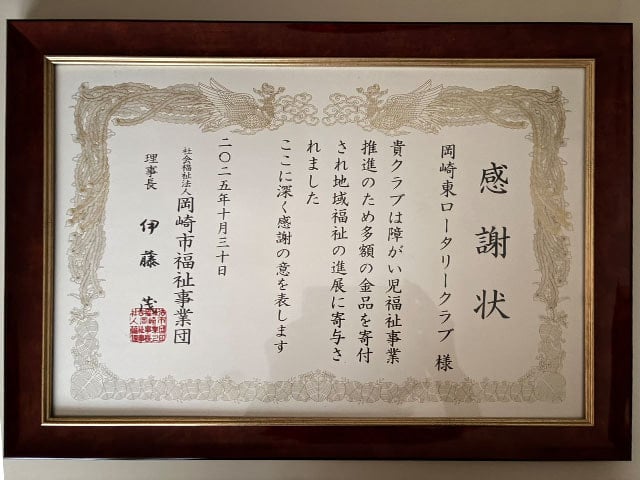 感謝状
岡崎東ロータリークラブ 様
貴クラブは障がい児福祉事業
推進のため多額の金品を寄付
され地域福祉の進展に寄与さ
れました
ここに深く感謝の意を表します
二〇二五年十月三十日
社会福祉法人 岡崎市福祉事業団
理事長 伊藤 茂